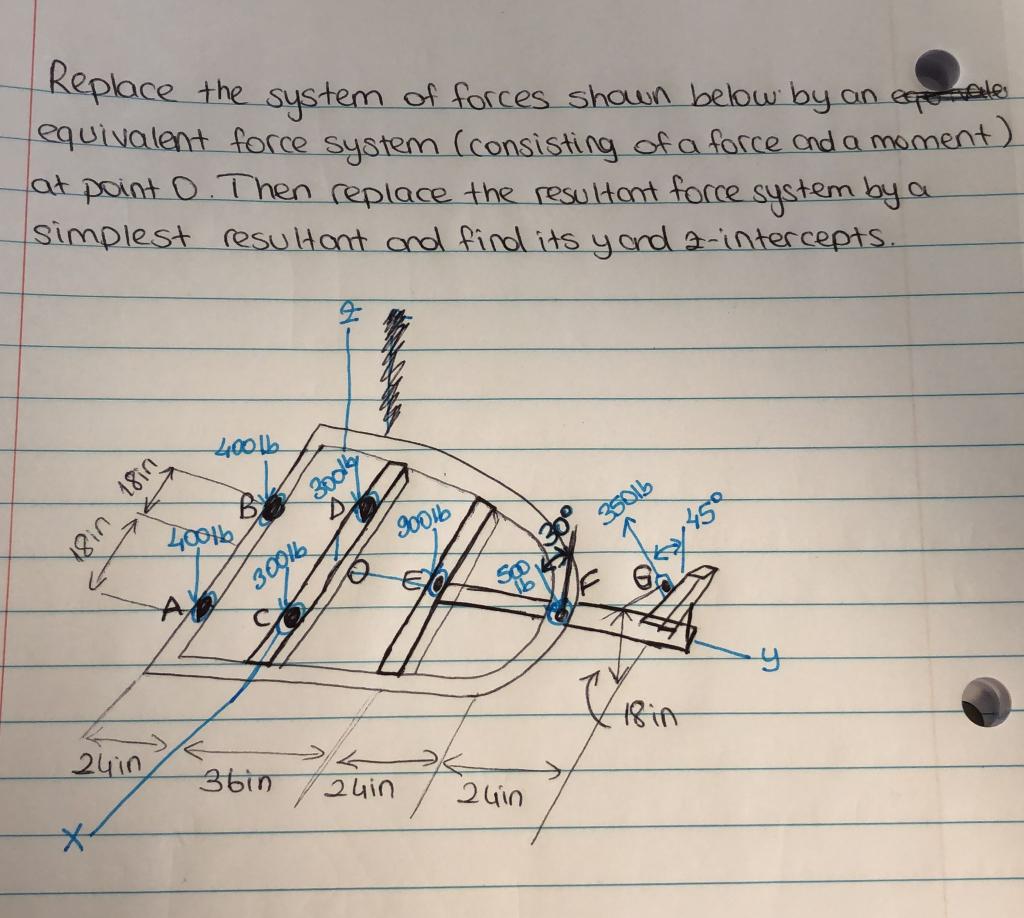 Replace the system of forces shown below by an
equivalent force system (consisting of a force and a moment)
at point O. Then replace the resultant force system by a
simplest resultant and find its y and z-intercepts.
z
400lb
18in
B
300lb
D
350lb
45°
30°
18in
400lb
900lb
300lb
O
E
500
lb
F
G
A
C
y
18in
24in
36in
24in
24in
X